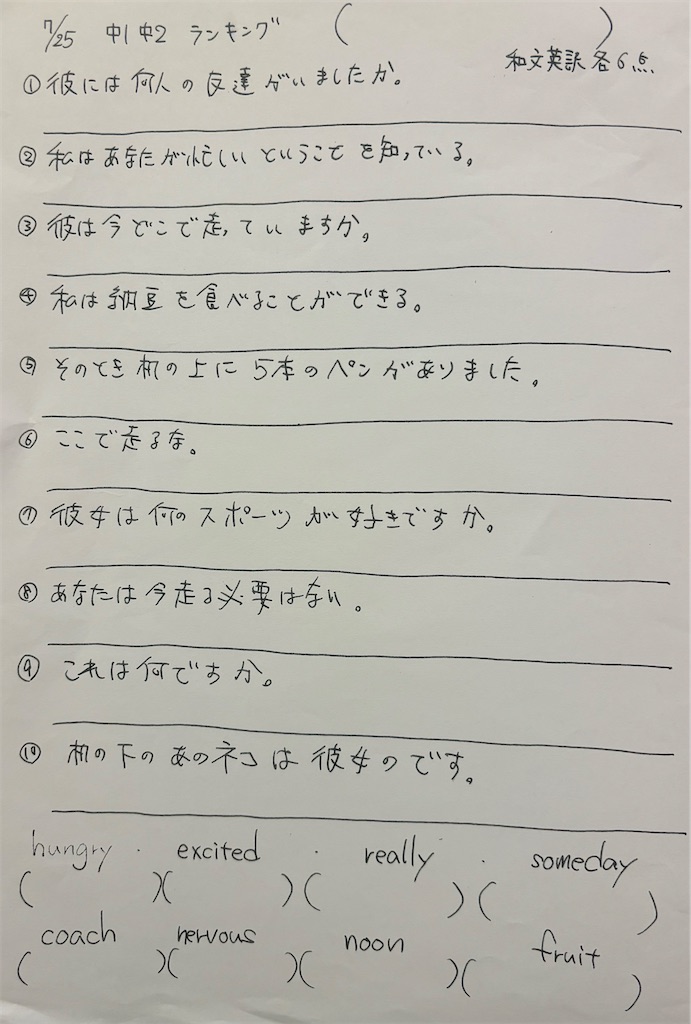 7/25 中1中2 ランキング (      )
和文英訳 各6点
①彼には何人の友達がいましたか。
②私はあなたが忙しいということを知っている。
③彼は今どこで走っていますか。
④私は納豆を食べることができる。
⑤そのとき机の上に5本のペンがありました。
⑥ここで走るな。
⑦彼女は何のスポーツが好きですか。
⑧あなたは今走る必要はない。
⑨これは何ですか。
⑩机の下のあのネコは彼女のです。
hungry · excited · really · someday
(      )(      )(      )(      )
coach nervous noon fruit
(      )(      )(      )(      )